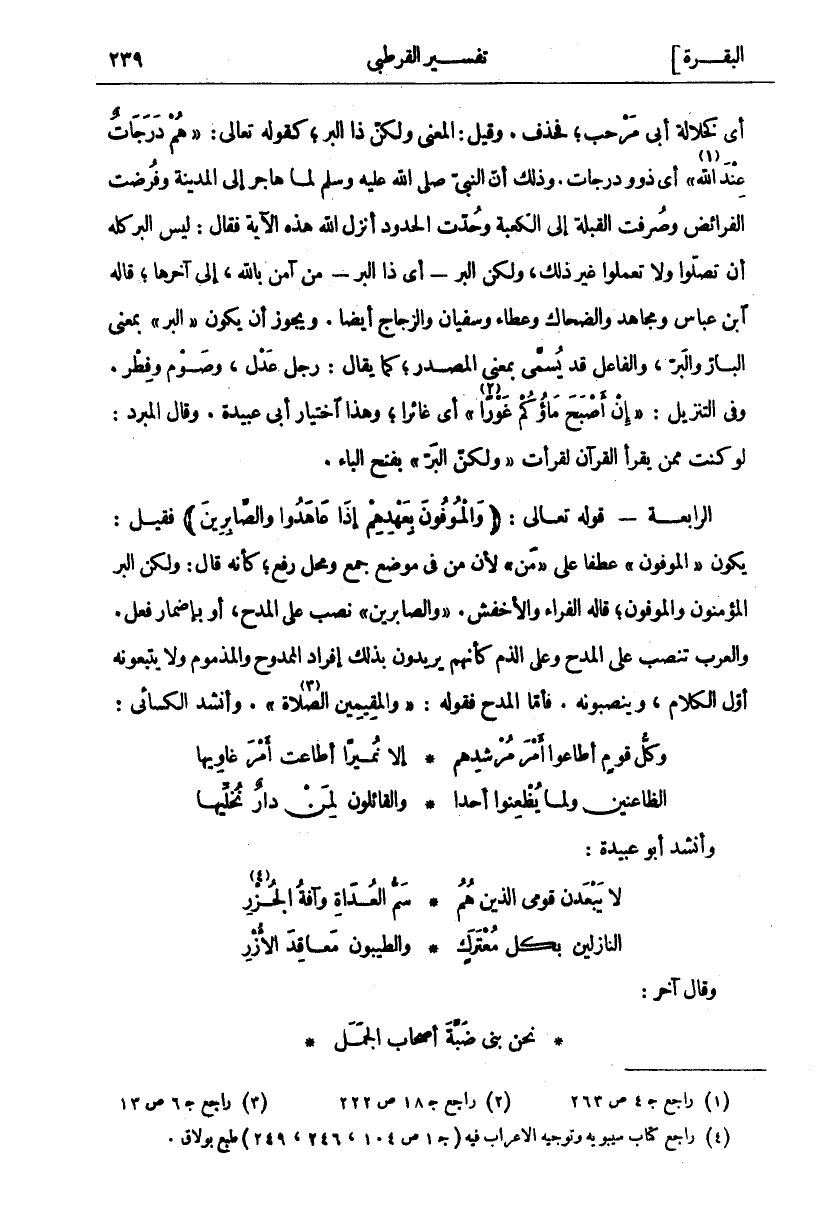 البقـــرة] تفســـير القرطبى ٢٣٩
أى كخلالة أبى مَرْحب؛ فحذف . وقيل: المعنى ولكنّ ذا البر؛ كقوله تعالى: « هُمْ دَرَجَاتٌ
عِنْدَ اللهِ (١) » أى ذوو درجات . وذلك أنّ النبىّ صلى الله عليه وسلم لمـا هاجر إلى المدينة وفُرضت
الفرائض وصُرفت القبلة إلى الكعبة وحُدّت الحدود أنزل الله هذه الآية فقال : ليس البر كله
أن تصلّوا ولا تعملوا غير ذلك، ولكن البر — أى ذا البر — من آمن بالله ، إلى آخرها ؛ قاله
آبن عباس ومجاهد والضحاك وعطاء وسفيان والزجاج أيضا . ويجوز أن يكون « البر » بمعنى
البـارّ والَبَرّ ، والفاعل قد يُسمَّى بمعنى المصـدر ؛ كما يقال : رجل عَدْل ، وصَـوْم وفِطْر .
وفى التنزيل : « إِنْ أَصْبَحَ مَاؤُكُمْ غَوْرًا (٢) » أى غائرا ؛ وهذا آختيار أبى عبيدة . وقال المبرد :
لو كنت ممن يقرأ القرآن لقرأت « ولكنّ البَرّ » بفتح الباء .
الرابعـــة — قوله تعـالى : ﴿ وَالْمُوفُونَ بِعَهْدِهِمْ إِذَا عَاهَدُوا والصَّابِرِينَ ﴾ فقيـل :
يكون « الموفون » عطفا على «مَن» لأن من فى موضع جمع ومحل رفع؛ كأنه قال: ولكن البر
المؤمنون والموفون؛ قاله الفراء والأخفش. «والصابرين» نصب على المدح، أو بإضمار فعل.
والعرب تنصب على المدح وعلى الذم كأنهم يريدون بذلك إفراد الممدوح والمذموم ولا يتبعونه
أوّل الكلام ، وينصبونه . فأمّا المدح فقوله : « والمقِيمِين الصَّلاة (٣) » . وأنشد الكسائى :
وكلُّ قومٍ أطاعوا أَمْرَ مُرْشدِهم * إلا نُمـيرًا أطاعت أَمْرَ غاوِيها
الظاعنيـن ولمـا يُظْعِنوا أحدا * والقائلون لِمَـنْ دارٌ نُخَلِّيهـا
وأنشد أبو عبيدة :
لا يَبْعَدن قومى الذين هُمُ * سَمُّ العُـدَاةِ وآفةُ الجُـزْرِ (٤)
النازلين بكـل مُعْتَرَكٍ * والطيبون مَعـاقِدَ الأُزْرِ
وقال آخر :
* نحن بنى ضَبَّةَ أصحاب الجَمَـل *
(١) راجع جـ ٤ ص ٢٦٣ (٢) راجع جـ ١٨ ص ٢٢٢ (٣) راجع جـ ٦ ص ١٣
(٤) راجع كتاب سيبويه وتوجيه الاعراب فيه ( جـ ١ ص ١٠٤ ، ٢٤٦ ، ٢٤٩ ) طبع بولاق .